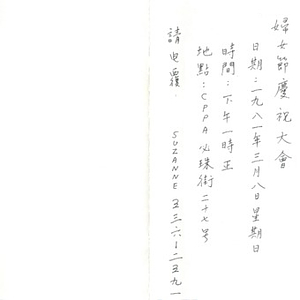 婦女節慶祝大會
日期：一九八一年三月八日星期日
時間：下午一時正
地點：CPPA 必珠街二十七号
請电覆. SUZANNE 五三六-二五九一